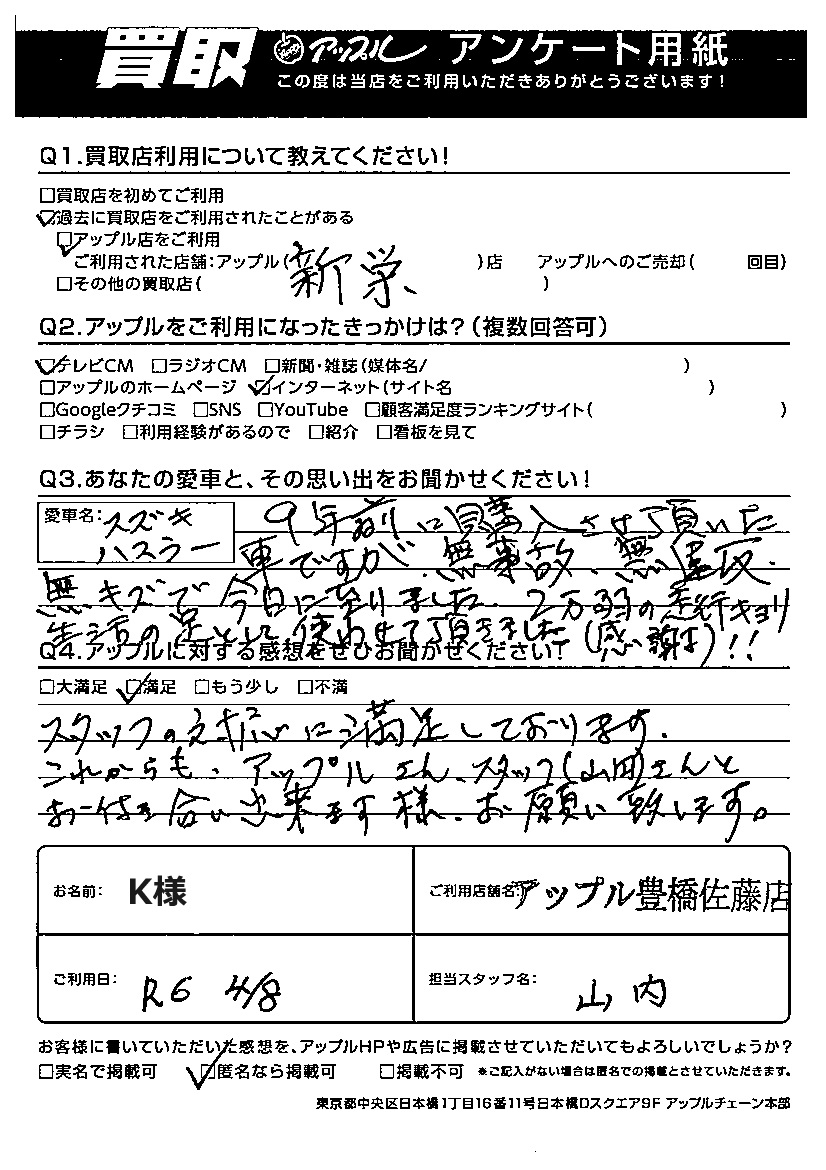 買取 アップル アンケート用紙
この度は当店をご利用いただきありがとうございます!
Q1.買取店利用について教えてください!
□買取店を初めてご利用
☑過去に買取店をご利用されたことがある
☑アップル店をご利用
ご利用された店舗:アップル(新栄、)店 アップルへのご売却( 回目)
□その他の買取店( )
Q2.アップルをご利用になったきっかけは?(複数回答可)
☑テレビCM □ラジオCM □新聞・雑誌(媒体名/ )
□アップルのホームページ ☑インターネット(サイト名 )
□Googleクチコミ □SNS □YouTube □顧客満足度ランキングサイト( )
□チラシ □利用経験があるので □紹介 □看板を見て
Q3.あなたの愛車と、その思い出をお聞かせください!
愛車名:スズキ
ハスラー
9年前に購入させて頂いた
車ですが、無事故、無
無キズで今日に至りました。2万弱の走行キョリ
生活の足として使わせて頂きました(感謝)!!
Q4.アップルに対する感想をぜひお聞かせください!
□大満足 ☑満足 □もう少し □不満
スタッフの対応に満足しております。
これからも、アップルさん、スタッフ(山内)さんと
お付き合い出来ます様、お願い致します。
お名前: K様
ご利用店舗名:アップル豊橋佐藤店
ご利用日: R6 4/8
担当スタッフ名: 山内
お客様に書いていただいた感想を、アップルHPや広告に掲載させていただいてもよろしいでしょうか?
□実名で掲載可 ☑匿名なら掲載可 □掲載不可 ※ご記入がない場合は匿名での掲載とさせていただきます。
東京都中央区日本橋1丁目16番11号日本橋Dスクエア9F アップルチェーン本部